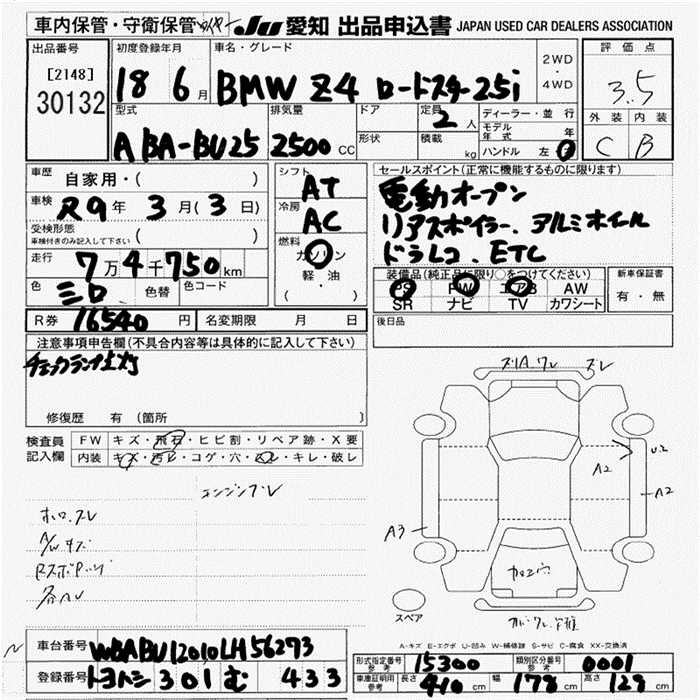 車内保管・守衛保管 JU 愛知 出品申込書 JAPAN USED CAR DEALERS ASSOCIATION
出品番号 初度登録年月 車名・グレード 2WD・4WD 評価点
[2148] 30132 18 6月 BMW Z4 ロードスター25i 3.5
型式 排気量 ドア 定員 2人 ディーラー・並行 外装 内装
モデル年式 年
ABA-BU25 2500CC 形状 積載 kg ハンドル 左 C B
車歴 自家用・( ) シフト AT セールスポイント(正常に機能するものに限ります)
車検 R9年 3月(3日) 冷房 AC 電動オープン
受検形態 ( ) リアスポイラー、アルミホイール
車検付きのみ記入して下さい
走行 7万4千750km 燃料 ガソリン ドラレコ、ETC
軽・油
( )
色 色替 色コード 装備品(純正品に限り○をつけてください) 新車保証書
PS PW エアB AW 有・無
SR ナビ TV カワシート
R券 16540円 名変期限 月 日 後日品
注意事項申告欄(不具合内容等は具体的に記入して下さい)
チェックランプ点灯
修復歴 有(箇所 )
検査員記入欄 FW キズ・飛石・ヒビ割・リペア跡・X要
内装 キズ・汚レ・コゲ・穴・キレ・破レ
A2
A2
A3
スペア
A-キズ E-エクボ U-凹み W-補修跡 S-サビ C-腐食 XX-交換済
車台番号 WBABU12010LH56273
登録番号 トヨハシ 301 む 433
形式指定番号 参考 15300 類別区分番号 参考 0001
車庫証明用 参考 長さ 410cm 幅 178cm 高さ 129cm